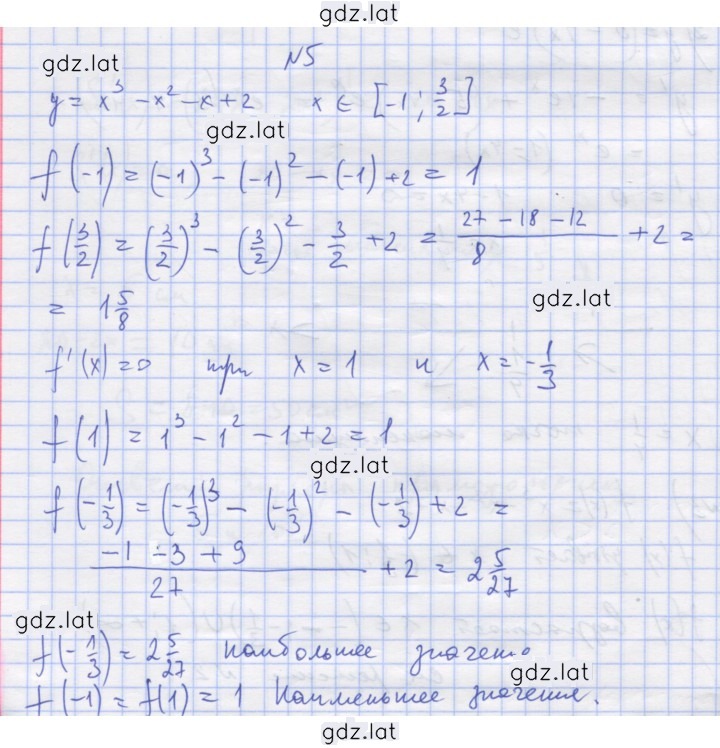 gdz.lat
gdz.lat
№5
y = x³ - x² - x + 2 x ∈ [-1; 3/2]
gdz.lat
f(-1) = (-1)³ - (-1)² - (-1) + 2 = 1
f(3/2) = (3/2)³ - (3/2)² - 3/2 + 2 = (27 - 18 - 12)/8 + 2 =
= 1 5/8
gdz.lat
f'(x) = 0 при x = 1 и x = -1/3
f(1) = 1³ - 1² - 1 + 2 = 1
gdz.lat
f(-1/3) = (-1/3)³ - (-1/3)² - (-1/3) + 2 =
(-1 - 3 + 9)/27 + 2 = 2 5/27
gdz.lat
f(-1/3) = 2 5/27 наибольшее
gdz.lat
f(-1) = f(1) = 1 Наименьшее значения.
gdz.lat